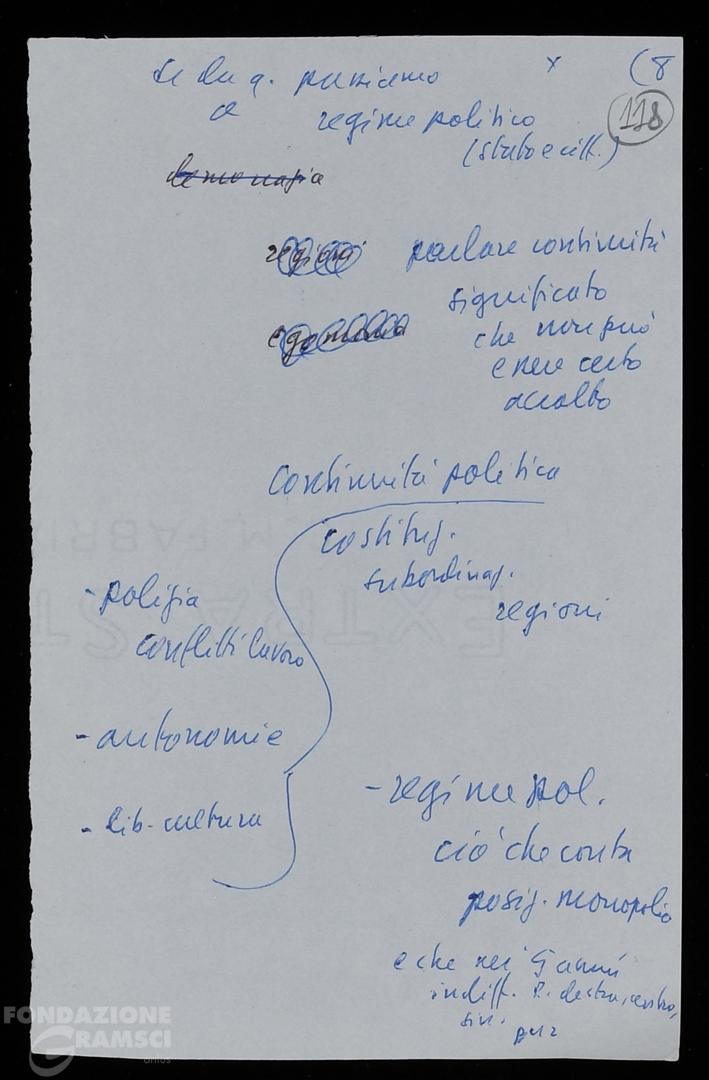 Se da q. passiamo x (8
a regime politico 118
(stato e citt.)
democrazia
regioni parlare continuità
significato
egemonia che non può
essere certo
accolto
Continuità politica
costituz.
subordinaz.
- polizia regioni
conflitti lavoro
- autonomie
- regime pol.
- lib. cultura
ciò che conta
posiz. monopolio
e che nei 5 anni
indiff. destra, centro,
sin.
FONDAZIONE
GRAMSCI
onlus